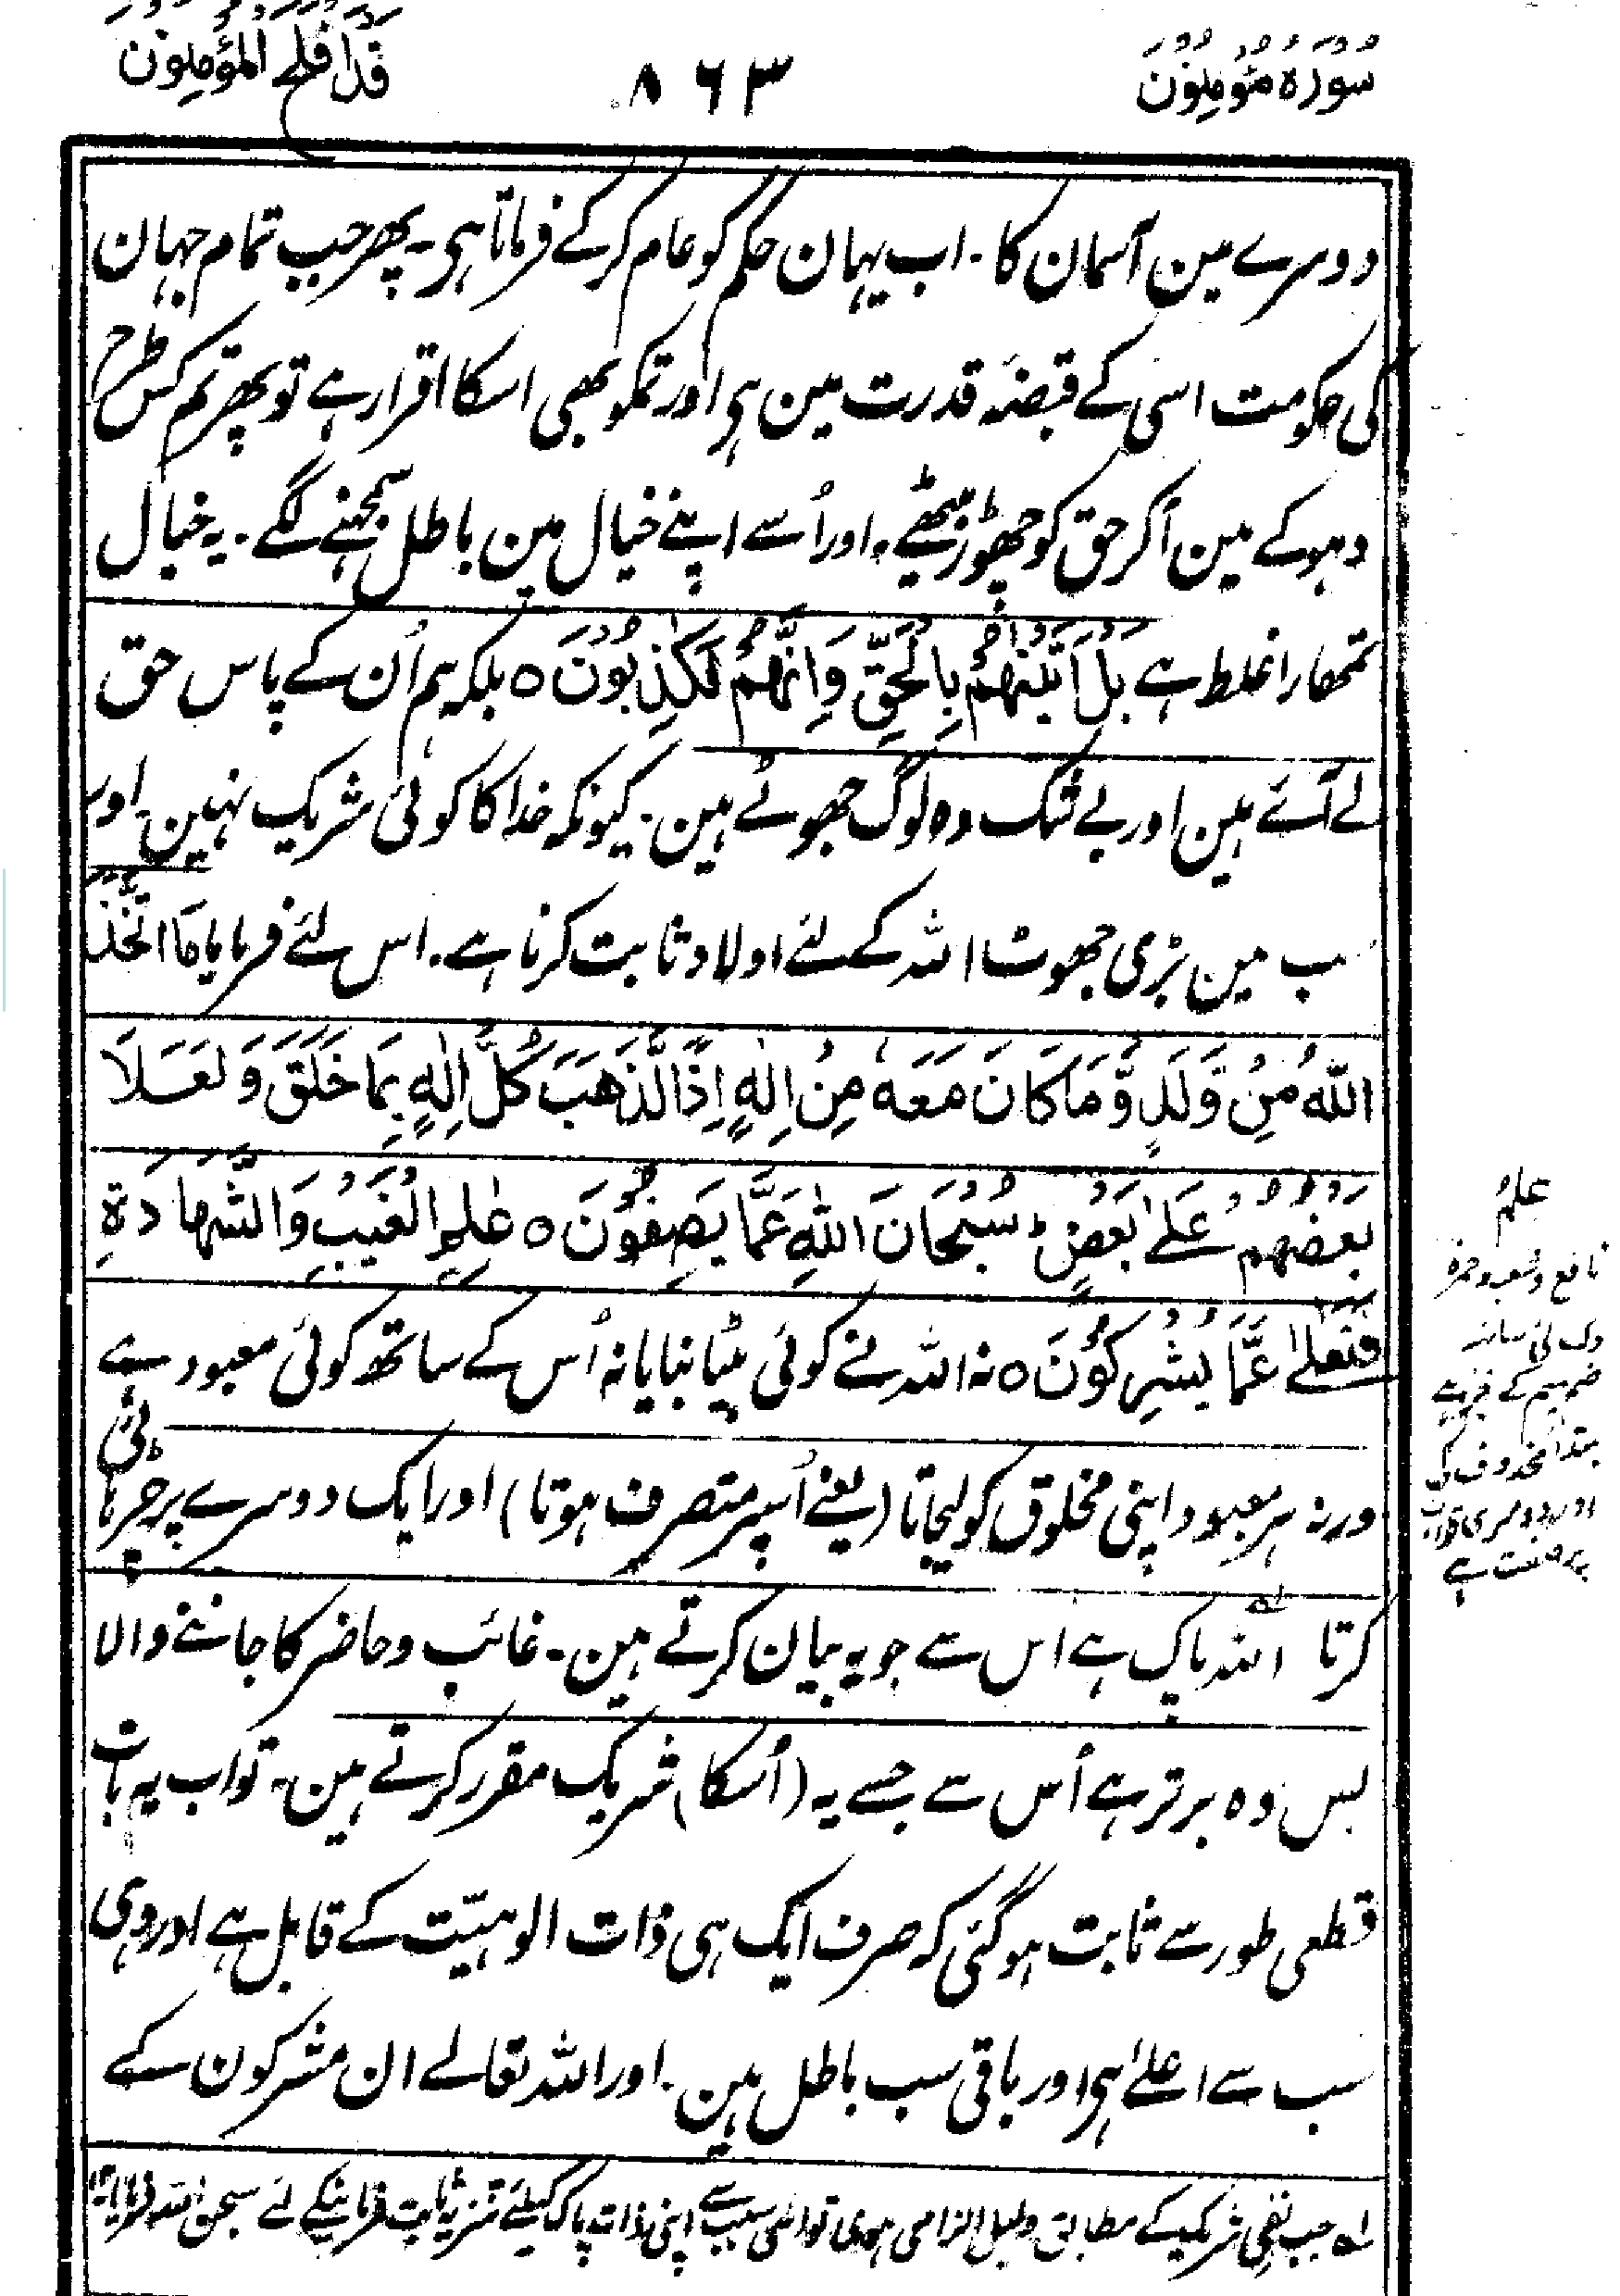 سُوْرَہ مُؤْمِنُوْنَ
٨٦٣
قَدْ اَفْلَحَ الْمُؤْمِنُوْنَ
دوسرے مین آسمان کا۔ اب یہان حکم کو عام کرکے فرماتا ہی۔ پھر جب تمام جہان
کی حکومت اسی کے قبضۂ قدرت مین ہی اور تمکو بھی اسکا اقرار ہے تو پھر تم کس طرح
دہوکے مین آکر حق کو چھوڑ بیٹھے۔ اور اُسے اپنے خیال مین باطل سمجہنے لگے۔ یہ خیال
تمھارا غلط ہے بَلْ اَتَيْنٰهُمْ بِالْحَقِّ وَاِنَّهُمْ لَكٰذِبُوْنَ ○ بلکہ ہم اُن کے پاس حق
لے آئے ہین اور بے شک وہ لوگ جھوٹے ہین۔ کیونکہ خدا کا کوئی شریک نہین۔ اور
سب مین بڑی جھوٹ اللہ کے لئے اولاد ثابت کرنا ہے۔ اس لئے فرمایا مَا اتَّخَذَ
اللّٰهُ مِنْ وَّلَدٍ وَّمَا كَانَ مَعَهٗ مِنْ اِلٰهٍ اِذًا لَّذَهَبَ كُلُّ اِلٰهٍ بِمَا خَلَقَ وَلَعَلَا
بَعْضُهُمْ عَلٰے بَعْضٍ ؕ سُبْحَانَ اللّٰهِ عَمَّا يَصِفُوْنَ ○ عٰلِمِ الْغَيْبِ وَالشَّهَادَةِ
فَتَعٰلٰے عَمَّا يُشْرِكُوْنَ ○ نہ اللہ نے کوئی بیٹا بنایا نہ اُس کے ساتھ کوئی معبود ہے
ورنہ ہر معبود اپنی مخلوق کو لیجاتا (یعنے اُسپر متصرف ہوتا) اور ایک دوسرے پر چڑہائی
کرتا اللہ پاک ہے اس سے جو یہ بیان کرتے ہین۔ غائب و حاضر کا جاننے والا
بس وہ برتر ہے اُس سے جسے یہ (اُسکا) شریک مقرر کرتے ہین۔ تو اب یہ بات
قطعی طور سے ثابت ہوگئی کہ صرف ایک ہی ذات الوہیّت کے قابل ہے اور وہی
سب سے اعلےٰ ہی اور باقی سب باطل ہین۔ اور اللہ تعالے ان مشرکون کے
لہ جب نفی شریک کے مطابق دلیل الزامی ہوئی تو اسی سبب سے اپنی ذات پاک کیلئے تنزیہ ثابت فرمانیکے لئے سبحٰن اللہ فرمایا
عٰلِمُ
نافع و شعبہ و حمزہ
و کسائی
ضمہ میم کے
مبتدا محذوف کی
اور دوسری قرأت
پر صفت ہے